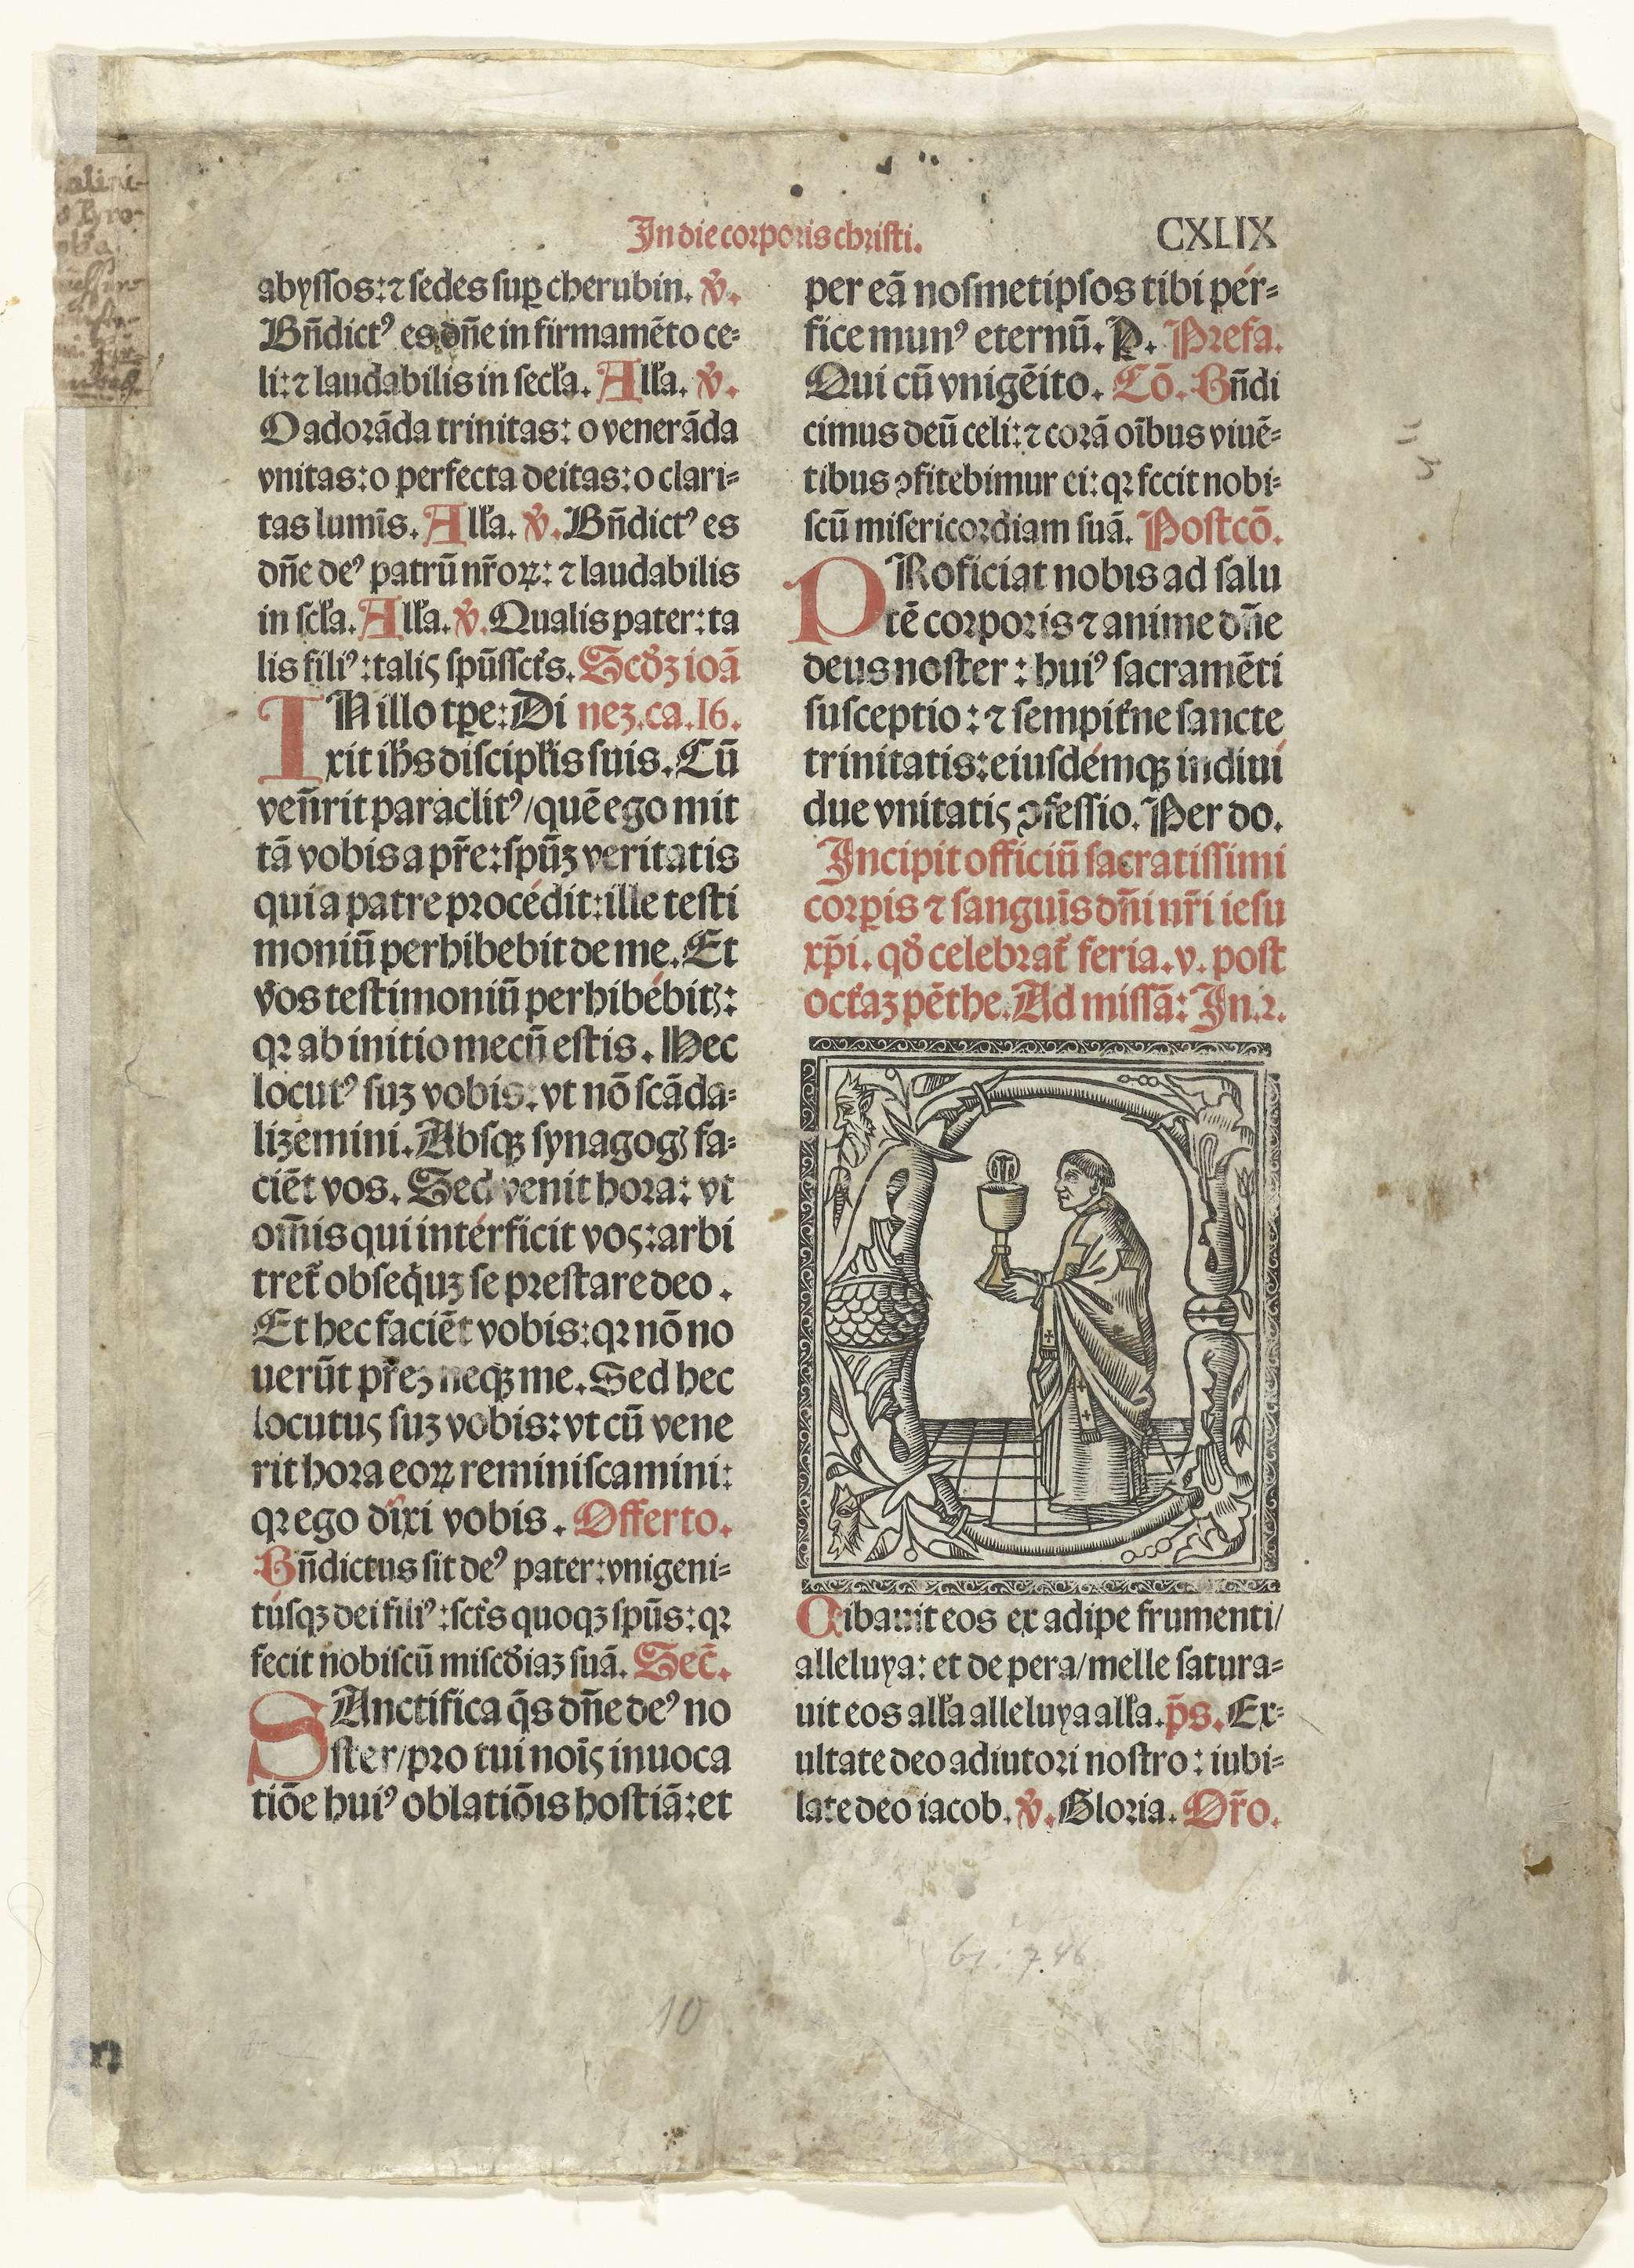 In die corporis christi.
CXLIX
abyssos: ⁊ sedes suꝑ cherubin. ℣.
Bn̄dictꝰ es dn̄e in firmamēto ce⸗
li: ⁊ laudabilis in secl̓a. All̓a. ℣.
O adorāda trinitas: o venerāda
vnitas: o perfecta deitas: o clari⸗
tas lumīs. All̓a. ℣. Bn̄dictꝰ es
dn̄e deꝰ patrū nr̄oꝝ: ⁊ laudabilis
in scl̓a. All̓a. ℣. Qualis pater: ta
lis filiꝰ: talis spūs sct̓s. Scd̓ꝫ ioā
IN illo tꝑe: Di neꝫ. ca. 16.
xit ih̓s discipl̓is suis. Cū
ven̄rit paraclitꝰ/ quē ego mit
tā vobis a pr̄e: spūꝫ veritatis
qui a patre procédit: ille testi
moniū perhibebit de me. Et
vos testimoniū perhibébitꝭ:
qꝛ ab initio mecū estis. Hec
locutꝰ suꝫ vobis: vt nō scāda⸗
lizemini. Absqꝫ synagogꝭ fa⸗
ciēt vos. Sed venit hora: vt
om̄is qui intérficit vos: arbi
tret̓ obseq̓uꝫ se prestare deo.
Et hec faciēt vobis: qꝛ nō no
uerūt pr̄eꝫ neqꝫ me. Sed hec
locutus suꝫ vobis: vt cū vene
rit hora eoꝝ reminiscamini:
qꝛ ego dixi vobis. Offerto.
Bn̄dictus sit deꝰ pater: vnigeni⸗
túsqꝫ dei filiꝰ: sct̓s quoqꝫ spūs: qꝛ
fecit nobiscū miscd̓iaꝫ suā. Sec̄.
SAnctifica q̄s dn̄e deꝰ no
ster/ pro tui noīs inuoca
tiōe huiꝰ oblatiōis hostiā: et
per eā nosmetipsos tibi pér⸗
fice munꝰ eternū. P. Prefa.
Qui cū vnigēito. Cō. Bn̄di
cimus deū celi: ⁊ corā oībus viuē⸗
tibus ↄfitebimur ei: qꝛ fecit nobi⸗
scū misericordiam suā. Postcō.
PRoficiat nobis ad salu
tē corporis ⁊ anime dn̄e
deus noster: huiꝰ sacramēti
susceptio: ⁊ sempit̓ne sancte
trinitatis: eiusdémqꝫ indiuí
due vnitatis ↄfessio. Per do.
Incipit officiū sacratissimi
corꝑis ⁊ sanguīs dn̄i nr̄i iesu
xp̄i. qd̓ celebrat̓ feria. v. post
oct̓aꝫ pēthe. Ad missā: In.ꝛ.
Cibauit eos ex adipe frumenti/
alleluya: et de petra/ melle satura⸗
uit eos all̓a alleluya all̓a. p̄s. Ex⸗
ultate deo adiutori nostro: iubi⸗
late deo iacob. ℣. Gloria. Or̄o.
61:746
10